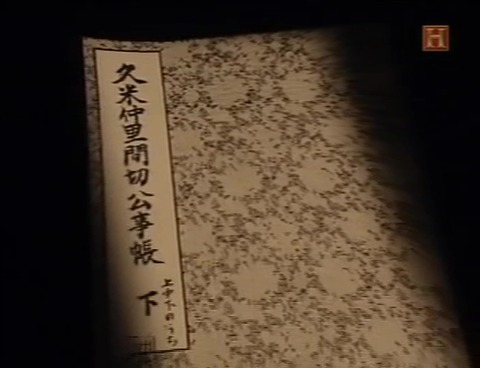 久米仲里間切公事帳
下
上中下のうち
H